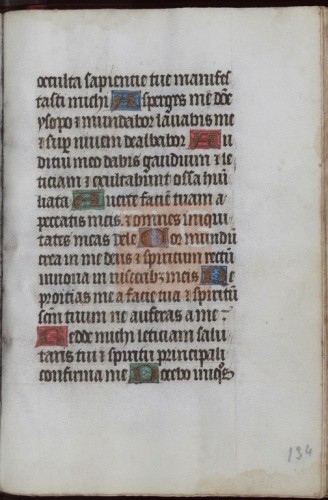 occulta sapientie tue manifes
tasti michi Asperges me dñe
ysopo ⁊ mundabor lavabis me
⁊ sup nivem dealbabor Au
ditui meo dabis gaudium ⁊ le
ticiam ⁊ exultabunt ossa hu
liata Averte faciē tuam a
peccatis meis ⁊ omnes iniqui
tates meas dele Cor mundū
crea in me deus ⁊ spiritum rectū
innova in viscerib; meis Ne
proicias me a facie tua ⁊ spiritū
scm̄ tuum ne auferas a me
Redde michi leticiam salu
taris tui ⁊ spiritu principali
confirma me Docebo iniqºs
134